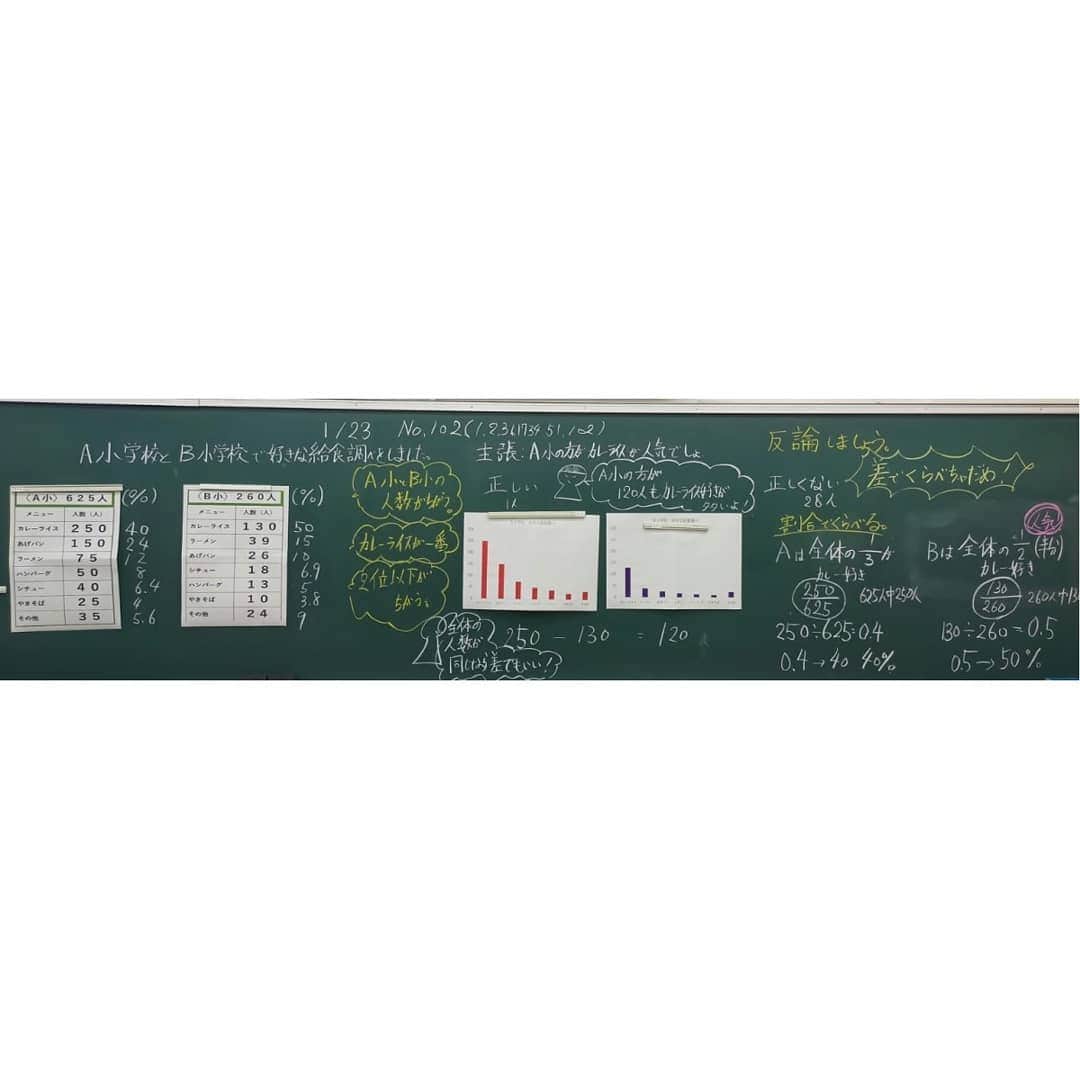 1/23 No.102
A小学校とB小学校で好きな給食調べをしました。
〈A小〉625人 (%)
メニュー 人数(人)
カレーライス 250 40
あげパン 150 24
ラーメン 75 12
ハンバーグ 50 8
シチュー 40 6.4
やきそば 25 4
その他 35 5.6
〈B小〉260人 (%)
メニュー 人数(人)
カレーライス 130 50
ラーメン 39 15
あげパン 26 10
シチュー 18 6.9
ハンバーグ 13 5
やきそば 10 3.8
その他 24 9
A小とB小の
人数がちがう
カレーライスが一番
2位以下が
ちがう
主張:A小の方がカレーライスが人気でしょ
正しい
1人
A小の方が
120人もカレーライス好きが
多いよ!
全体の
人数が
同じなら差でもいい!
250-130=120
反論しましょう。
正しくない
28人
差でくらべちゃだめ!
割合でくらべる。
Aは全体の1/3が
カレー好き
250/625 625人中250人
250÷625=0.4
0.4→40 40%
人気
Bは全体の1/2
カレー好き
130/260 260人中130
130÷260=0.5
0.5→50%